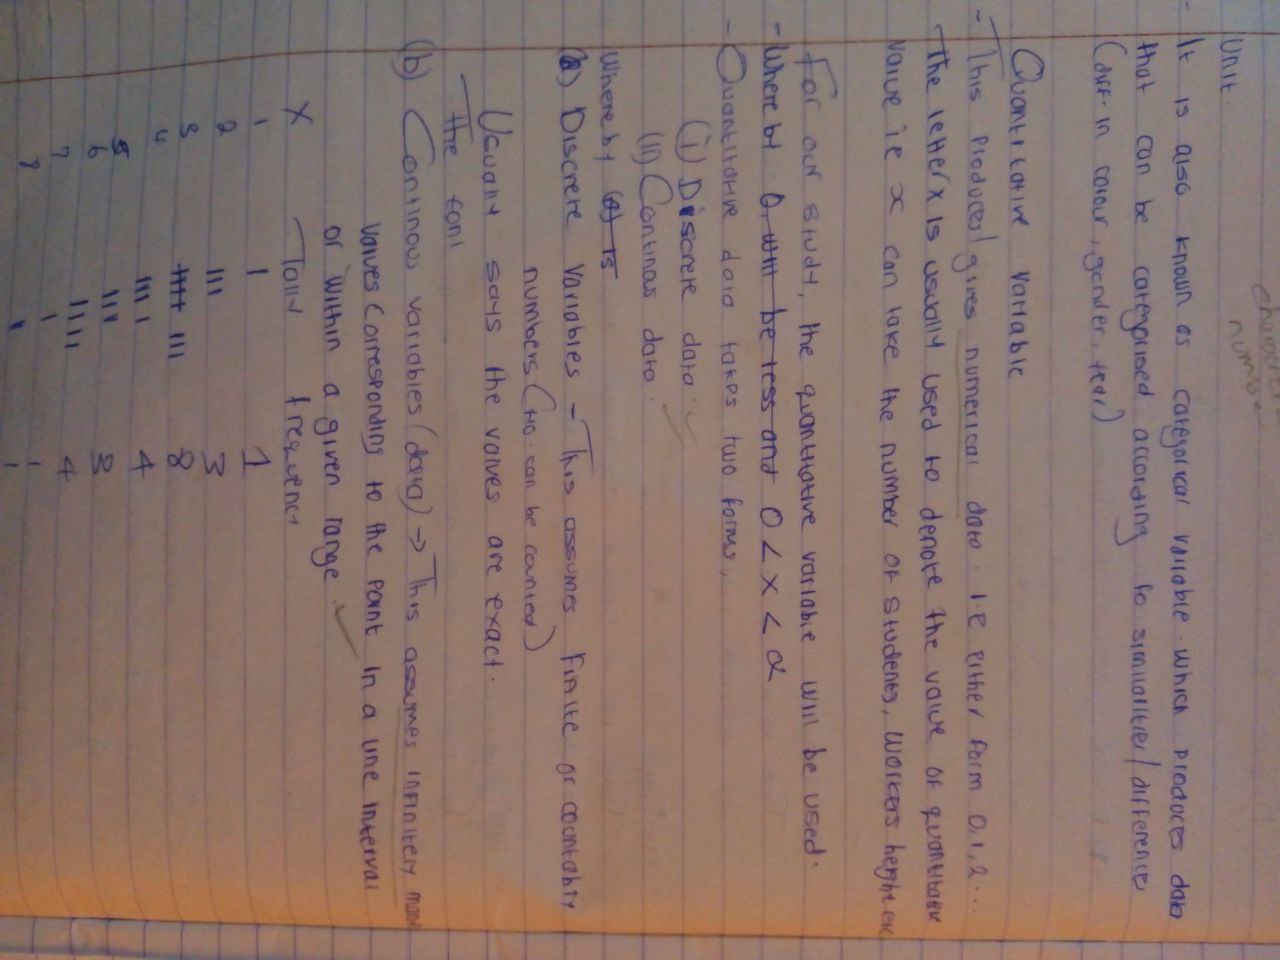 Unit
- It is also known as categorical variable which produces data
that can be categorised according to similarities/difference
(diff- in colour, gender, year)
Quantitative variable
- This produces/gives numerical data i.e either form 0,1,2...
The letter x is usually used to denote the value of quantitative
value ie x can take the number of students, workers height etc
For our study, the quantitative variable will be used.
- Where by 0 will be less and 0 < x < α
- Quantitative data takes two forms,
(i) Discrete data
(ii) Continous data
Where by (a) is
(a) Discrete Variables - This assumes finite or countably
numbers (no. can be counted)
Usually says the values are exact.
The
(b) Continous variables (data) → This assumes infinitely many
values corresponding to the point in a line interval
or within a given range
X Tally frequency
1 | 1
2 ||| 3
3 |||| ||| 8
4 |||| 4
5 ||| 3
6 |||| 4
7 | 1
8 | 1